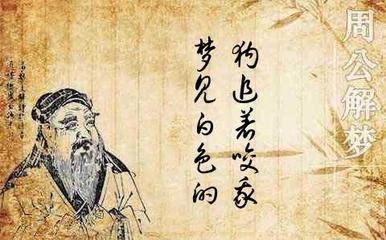 周公解梦
梦见白色的
狗追着咬我